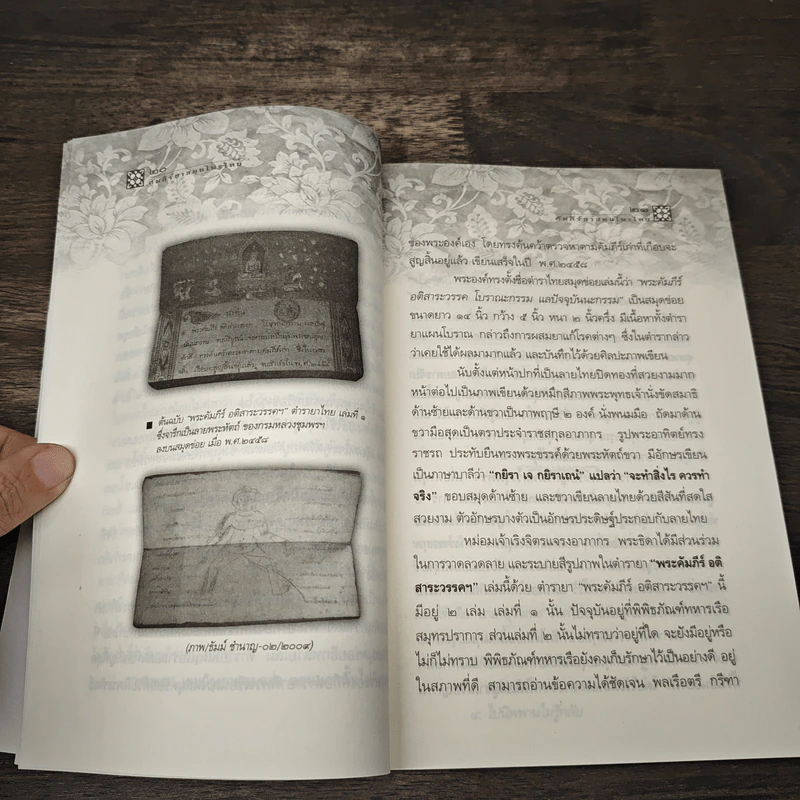 ๒๐
คัมภีร์ยาสมุนไพรไทย
■ ต้นฉบับ "พระคัมภีร์ อติสาระวรรคฯ" ตำรายาไทย เล่มที่ ๑
ซึ่งจารึกเป็นลายพระหัตถ์ ของกรมหลวงชุมพรฯ
ลงบนสมุดข่อย เมื่อ พ.ศ.๒๔๕๘
(ภาพ/ธัมม์ ชำนาญ-๐๒/๒๐๐๔)
คัมภีร์ยาสมุนไพรไทย
ของพระองค์เอง โดยทรงค้นคว้าตรวจหาตามคัมภีร์เก่าที่เกือบจะ
สูญสิ้นอยู่แล้ว เขียนเสร็จในปี พ.ศ.๒๔๕๘
พระองค์ทรงตั้งชื่อตำราไทยสมุดข่อยเล่มนี้ว่า "พระคัมภีร์
อติสาระวรรค โบราณะกรรม แลปัจจุบันนะกรรม" เป็นสมุดข่อย
ขนาดยาว ๑๔ นิ้ว กว้าง ๕ นิ้ว หนา ๒ นิ้วครึ่ง มีเนื้อหาทั้งตำรา
ยาแผนโบราณ กล่าวถึงการผสมยาแก้โรคต่างๆ ซึ่งในตำรากล่าว
ว่าเคยใช้ได้ผลมามากแล้ว และบันทึกไว้ด้วยศิลปะภาพเขียน
นับตั้งแต่หน้าปกที่เป็นลายไทยปิดทองที่สวยงามมาก
หน้าต่อไปเป็นภาพเขียนด้วยหมึกสีภาพพระพุทธเจ้านั่งขัดสมาธิ
ด้านซ้ายและด้านขวาเป็นภาพฤาษี ๒ องค์ นั่งพนมมือ ถัดมาด้าน
ขวามือสุดเป็นตราประจำราชสกุลอาภากร รูปพระอาทิตย์ทรง
ราชรถ ประทับยืนทรงพระขรรค์ด้วยพระหัตถ์ขวา มีอักษรเขียน
เป็นภาษาบาลีว่า "กยิรา เจ กยิราเถนํ" แปลว่า "จะทำสิ่งไร ควรทำ
จริง" ขอบสมุดด้านซ้าย และขวาเขียนลายไทยด้วยสีสันที่สดใส
สวยงาม ตัวอักษรบางตัวเป็นอักษรประดิษฐ์ประกอบกับลายไทย
หม่อมเจ้าเริงจิตรแจรงอาภากร พระธิดาได้มีส่วนร่วม
ในการวาดลวดลาย และระบายสีรูปภาพในตำรายา "พระคัมภีร์ อติ
สาระวรรคฯ" เล่มนี้ด้วย ตำรายา "พระคัมภีร์ อติสาระวรรคฯ" นี้
มีอยู่ ๒ เล่ม เล่มที่ ๑ นั้น ปัจจุบันอยู่ที่พิพิธภัณฑ์ทหารเรือ
สมุทรปราการ ส่วนเล่มที่ ๒ นั้นไม่ทราบว่าอยู่ที่ใด จะยังมีอยู่หรือ
ไม่ก็ไม่ทราบ พิพิธภัณฑ์ทหารเรือยังคงเก็บรักษาไว้เป็นอย่างดี อยู่
ในสภาพที่ดี สามารถอ่านข้อความได้ชัดเจน พลเรือตรี กรีฑา